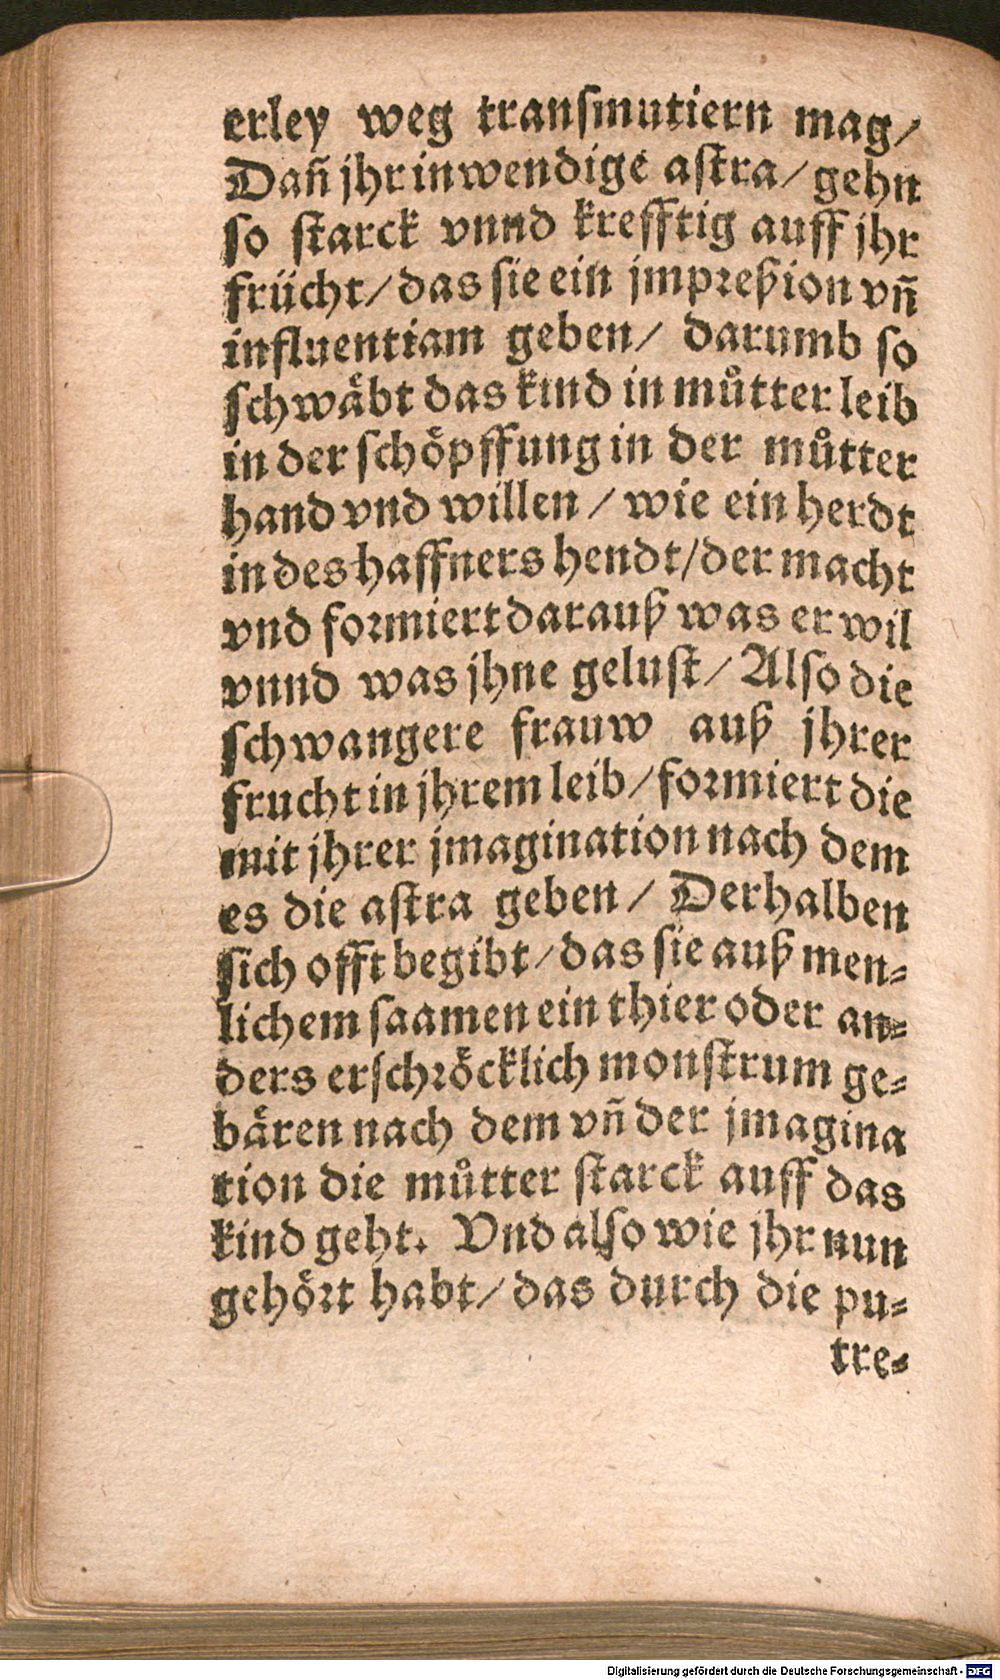 erley weg transmutiern mag/
Dañ jhr inwendige astra/ gehn
so starck vnnd krefftig auff jhr
frücht/ das sie ein jmpreßion vñ
influentiam geben/ darumb so
schwäbt das kind in můtter leib
in der schöpffung in der můtter
hand vnd willen/ wie ein herdt
in des haffners hendt/ der macht
vnd formiert darauß was er wil
vnnd was jhne gelust/ Also die
schwangere frauw auß jhrer
frucht in jhrem leib/ formiert die
mit jhrer jmagination nach dem
es die astra geben/ Derhalben
sich offt begibt/ das sie auß men-
lichem saamen ein thier oder an-
ders erschröcklich monstrum ge-
bären nach dem vñ der jmagina
tion die můtter starck auff das
kind geht. Vnd also wie jhr nun
gehört habt/ das durch die pu-
tre-
Digitalisierung gefördert durch die Deutsche Forschungsgemeinschaft - DFG